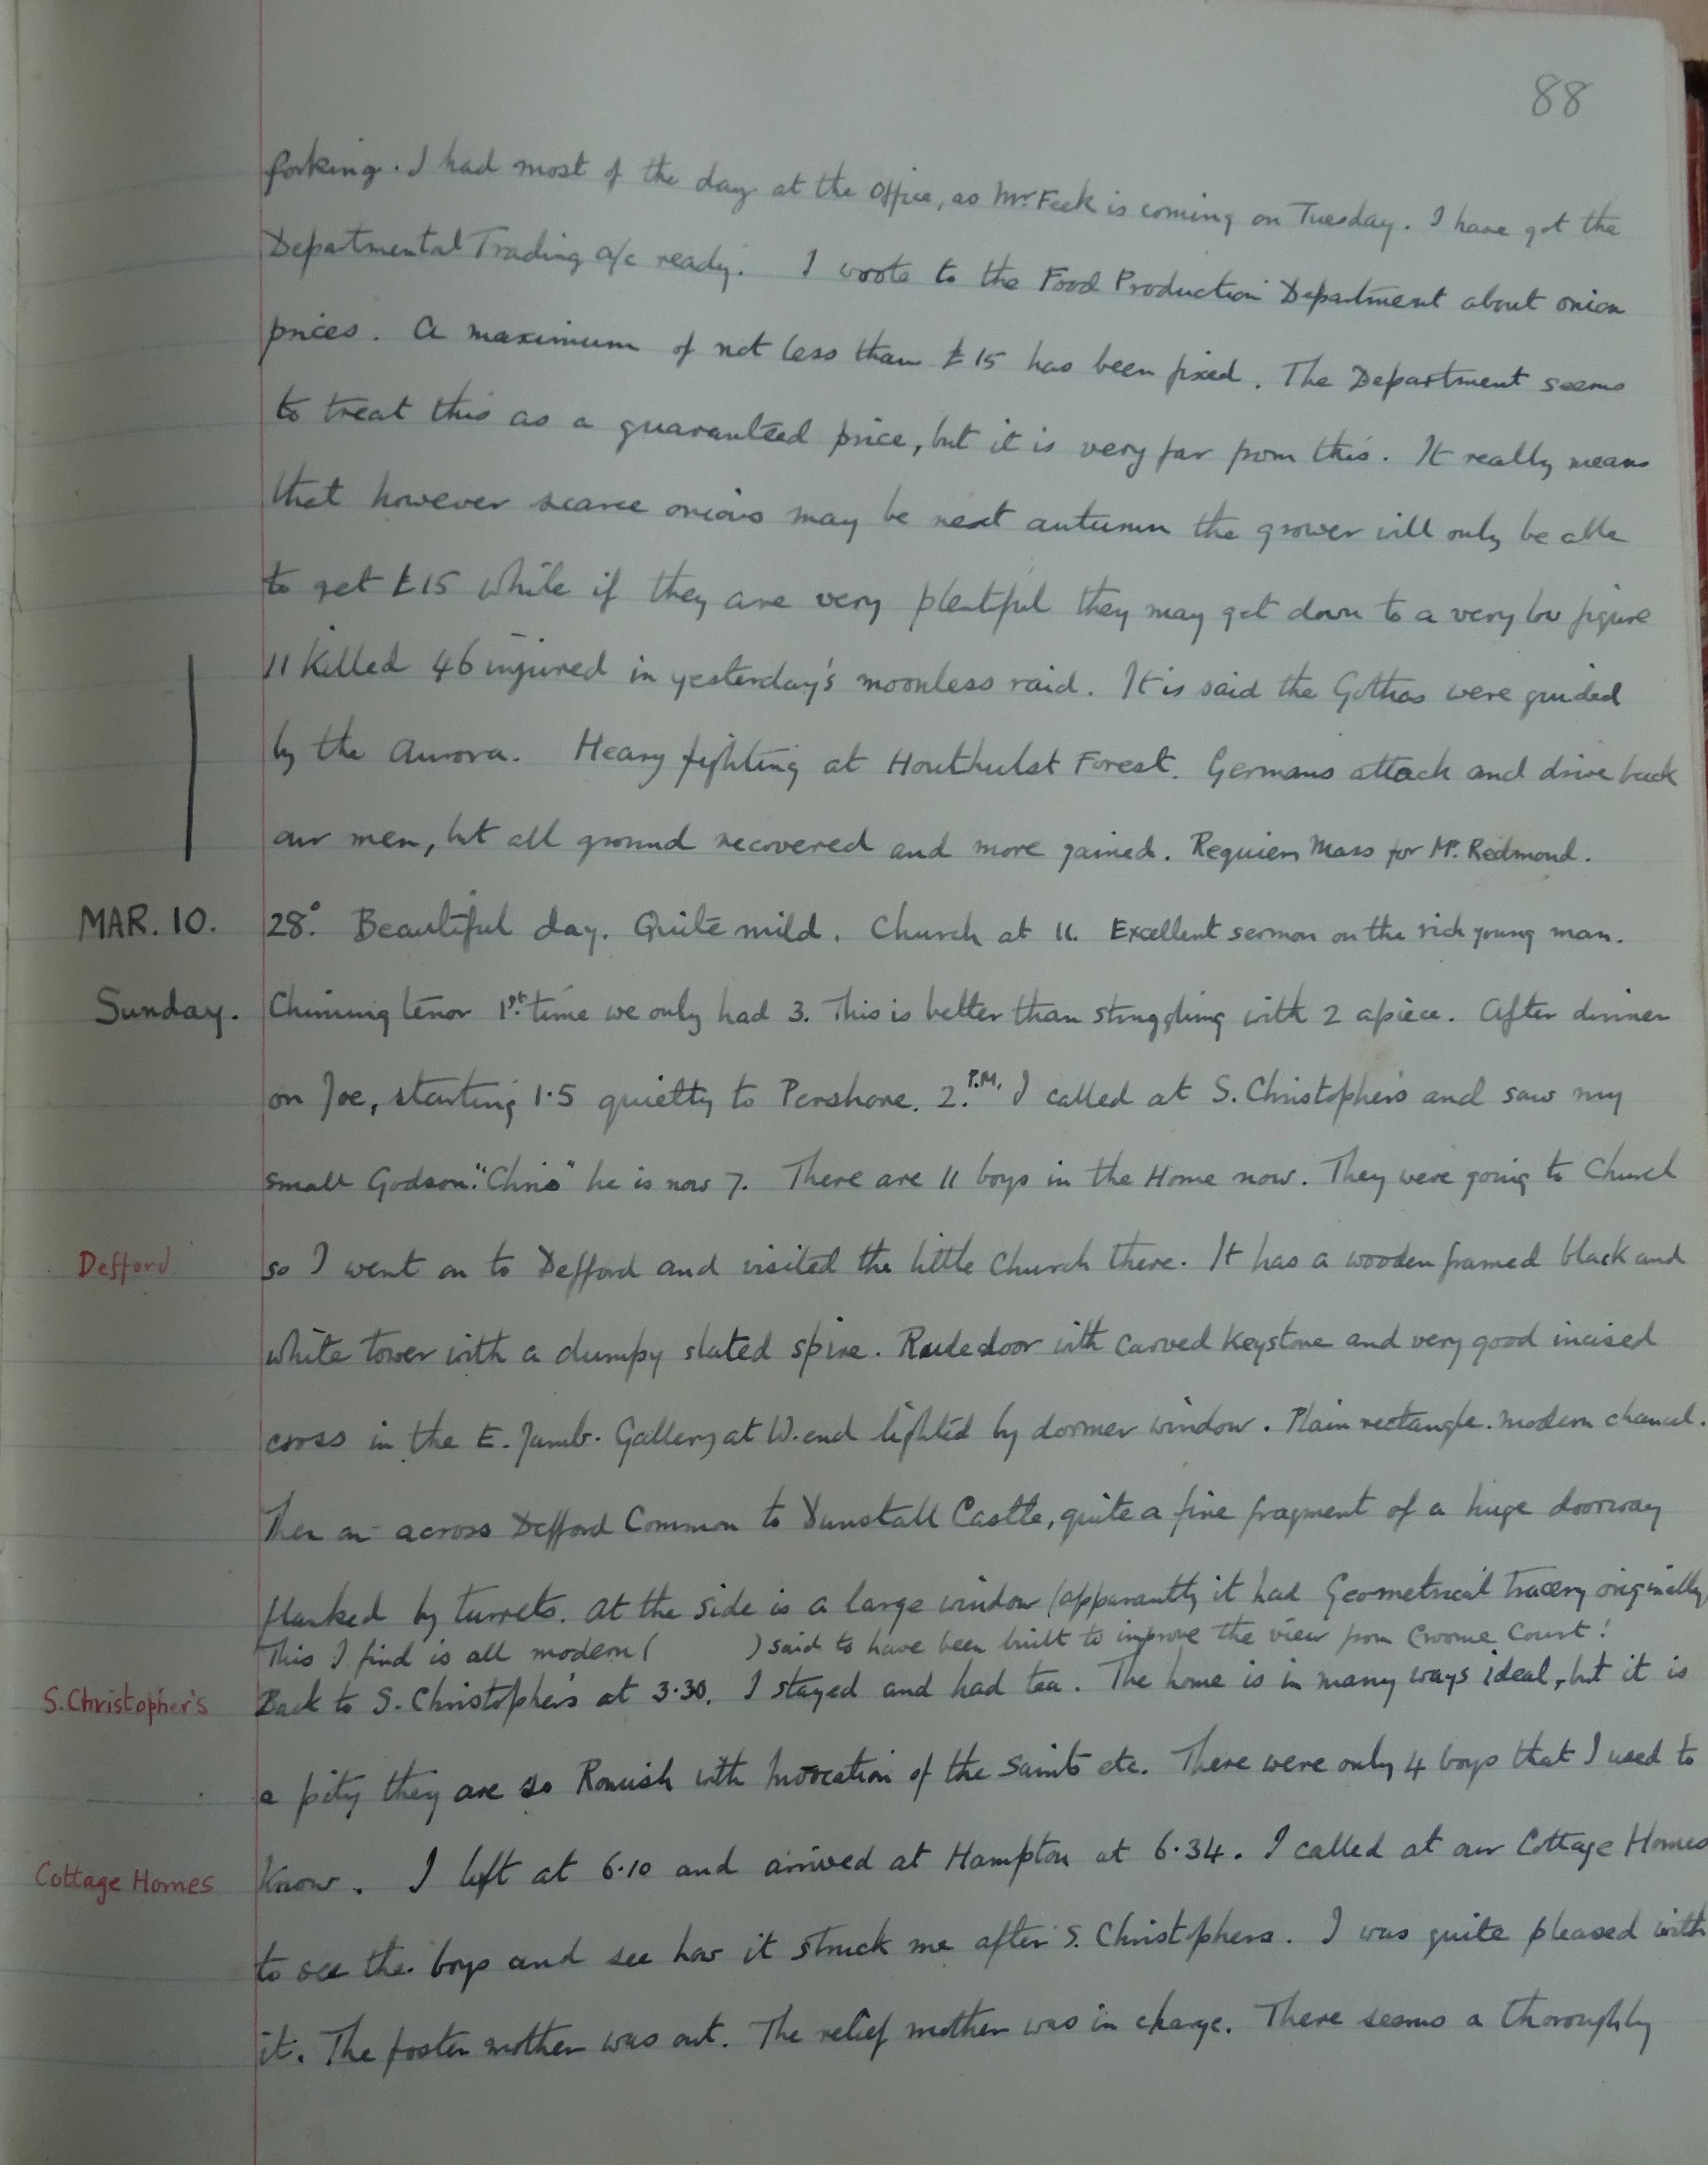 88
forking. I had most of the day at the Office, as Mr. Feek is coming on Tuesday. I have got the
Departmental Trading a/c ready. I wrote to the Food Production Department about onion
prices. A maximum of not less than £15 has been fixed. The Department seems
to treat this as a guaranteed price, but it is very far from this. It really means
that however scarce onions may be next autumn the grower will only be able
to get £15 while if they are very plentiful they may get down to a very low figure
11 killed 46 injured in yesterday's moonless raid. It is said the Gothas were guided
by the Aurora. Heavy fighting at Houthulst Forest. Germans attack and drive back
our men, but all ground recovered and more gained. Requiem Mass for Mr. Redmond.
MAR. 10. 28°. Beautiful day. Quite mild. Church at 11. Excellent sermon on the rich young man.
Sunday. Chiming tenor 1st. time we only had 3. This is better than struggling with 2 apiece. After dinner
on Joe, starting 1.5 quietly to Pershore. 2. P.M. I called at S. Christopher's and saw my
small Godson "Chris" he is now 7. There are 11 boys in the Home now. They were going to Church
Defford so I went on to Defford and visited the little Church there. It has a wooden framed black and
white tower with a dumpy slated spire. Rude door with carved keystone and very good incised
cross in the E. Jamb. Gallery at W. end lighted by dormer window. Plain rectangle. Modern chancel.
Then on across Defford Common to Dunstall Castle, quite a fine fragment of a huge doorway
flanked by turrets. At the side is a large window (apparantly it had Geometrical tracery originally
This I find is all modern ( ) said to have been built to improve the view from Croome Court!
S. Christopher's Back to S. Christopher's at 3.30. I stayed and had tea. The home is in many ways ideal, but it is
a pity they are so Romish with Invocation of the Saints etc. There were only 4 boys that I used to
Cottage Homes know. I left at 6.10 and arrived at Hampton at 6.34. I called at our Cottage Homes
to see the boys and see how it struck me after S. Christophers. I was quite pleased with
it. The foster mother was out. The relief mother was in charge. There seems a thoroughly